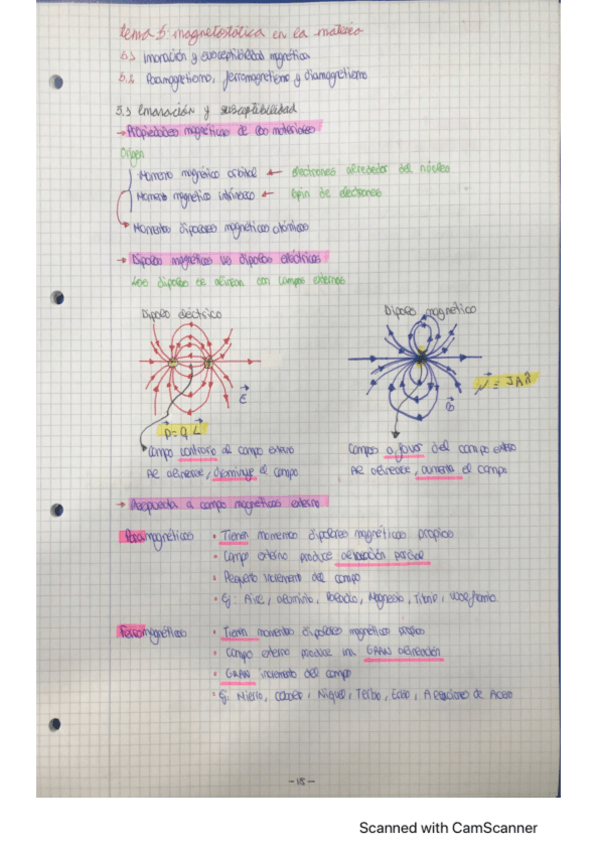 tema 5: magnetostática en la materia
5.1 Imanación y susceptibilidad magnética
5.2 Paramagnetismo, ferromagnetismo y diamagnetismo
5.1 Imanación y susceptibilidad
→ Propiedades magnéticas de los materiales
Origen
Momento magnético orbital ← electrones alrededor del núcleo
Momento magnético intrínseco ← spin de electrones
Momentos dipolares magnéticos atómicos
→ Dipolos magnéticos vs dipolos eléctricos
Los dipolos se alinean con campos externos
Dipolo eléctrico
Dipolo magnético
E
B
P = Q·L
Campo contrario al campo externo
Al alinearse, disminuye el campo
Campos a favor del campo externo
Al alinearse, aumenta el campo
→ Respuesta a campo magnético externo
Paramagnéticos
• Tienen momentos dipolares magnéticos propios
• Campo externo produce alineación parcial
• Pequeño incremento del campo
• Ej: Aire, aluminio, Paladio, Magnesio, Titnio, wolframio
Ferromagnéticos
• Tienen momentos dipolares magnéticos propios
• Campo externo produce una GRAN alineación
• GRAN incremento del campo
• Ej: Hierro, cobalto, Niquel, Terbio, Aleaciones de Acero
-15-
Scanned with CamScanner